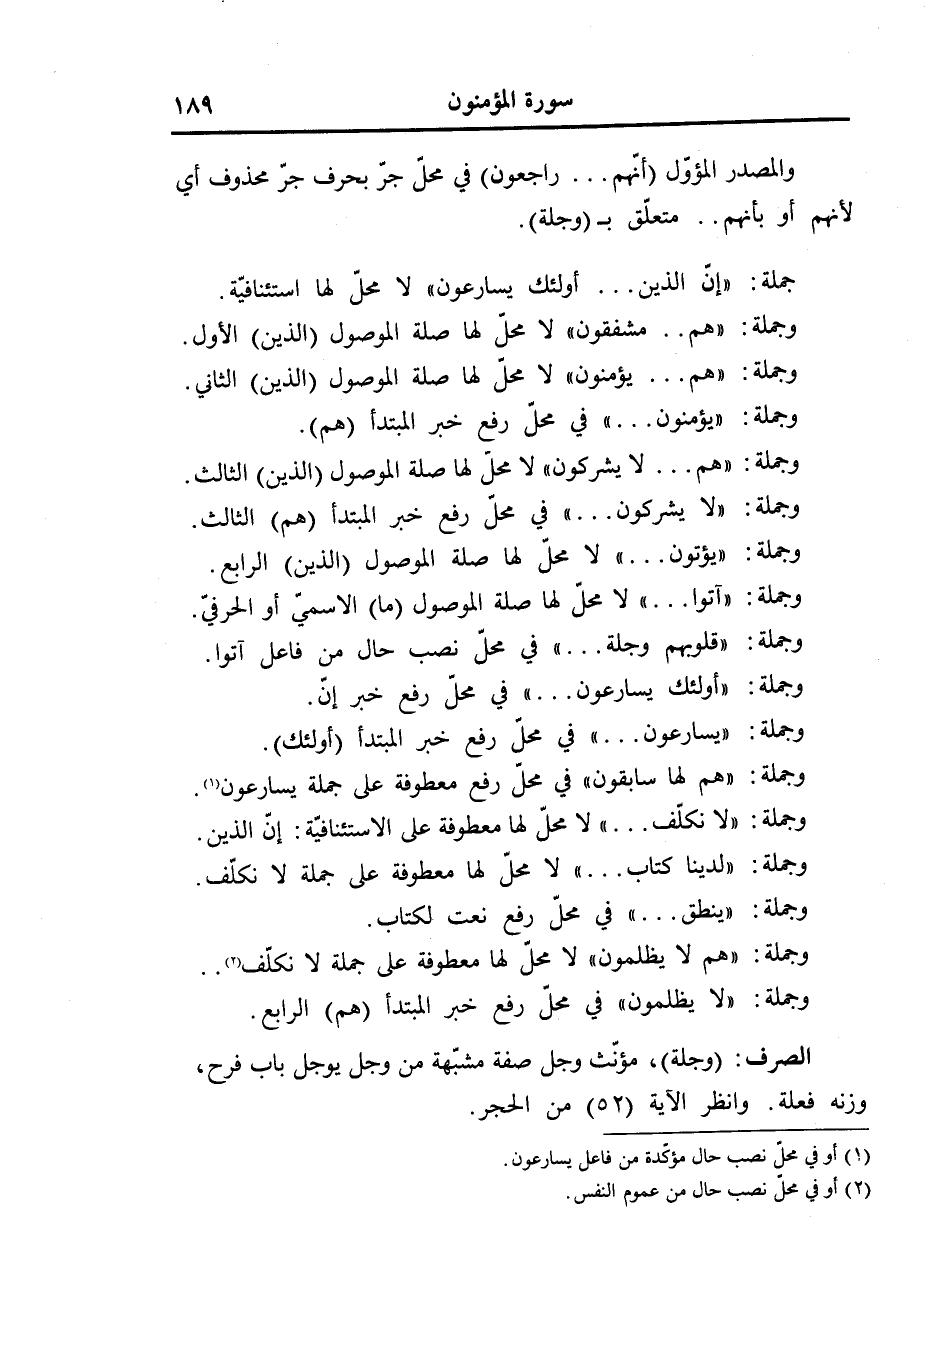 سورة المؤمنون ١٨٩
والمصدر المؤوّل (أنّهم... راجعون) في محلّ جرّ بحرف جرّ محذوف أي
لأنهم أو بأنهم.. متعلّق بـ (وجلة).
جملة: «إنّ الذين... أولئك يسارعون» لا محلّ لها استئنافيّة.
وجملة: «هم.. مشفقون» لا محلّ لها صلة الموصول (الذين) الأول.
وجملة: «هم... يؤمنون» لا محلّ لها صلة الموصول (الذين) الثاني.
وجملة: «يؤمنون...» في محلّ رفع خبر المبتدأ (هم).
وجملة: «هم... لا يشركون» لا محلّ لها صلة الموصول (الذين) الثالث.
وجملة: «لا يشركون...» في محلّ رفع خبر المبتدأ (هم) الثالث.
وجملة: «يؤتون...» لا محلّ لها صلة الموصول (الذين) الرابع.
وجملة: «آتوا...» لا محلّ لها صلة الموصول (ما) الاسميّ أو الحرفيّ.
وجملة: «قلوبهم وجلة...» في محلّ نصب حال من فاعل آتوا.
وجملة: «أولئك يسارعون...» في محلّ رفع خبر إنّ.
وجملة: «يسارعون...» في محلّ رفع خبر المبتدأ (أولئك).
وجملة: «هم لها سابقون» في محلّ رفع معطوفة على جملة يسارعون(١).
وجملة: «لا نكلّف...» لا محلّ لها معطوفة على الاستئنافيّة: إنّ الذين.
وجملة: «لدينا كتاب...» لا محلّ لها معطوفة على جملة لا نكلّف.
وجملة: «ينطق...» في محلّ رفع نعت لكتاب.
وجملة: «هم لا يظلمون» لا محلّ لها معطوفة على جملة لا نكلّف(٢)..
وجملة: «لا يظلمون» في محلّ رفع خبر المبتدأ (هم) الرابع.
الصرف: (وجلة)، مؤنّث وجل صفة مشبّهة من وجل يوجل باب فرح،
وزنه فعلة. وانظر الآية (٥٢) من الحجر.
(١) أو في محلّ نصب حال مؤكّدة من فاعل يسارعون.
(٢) أو في محلّ نصب حال من عموم النفس.